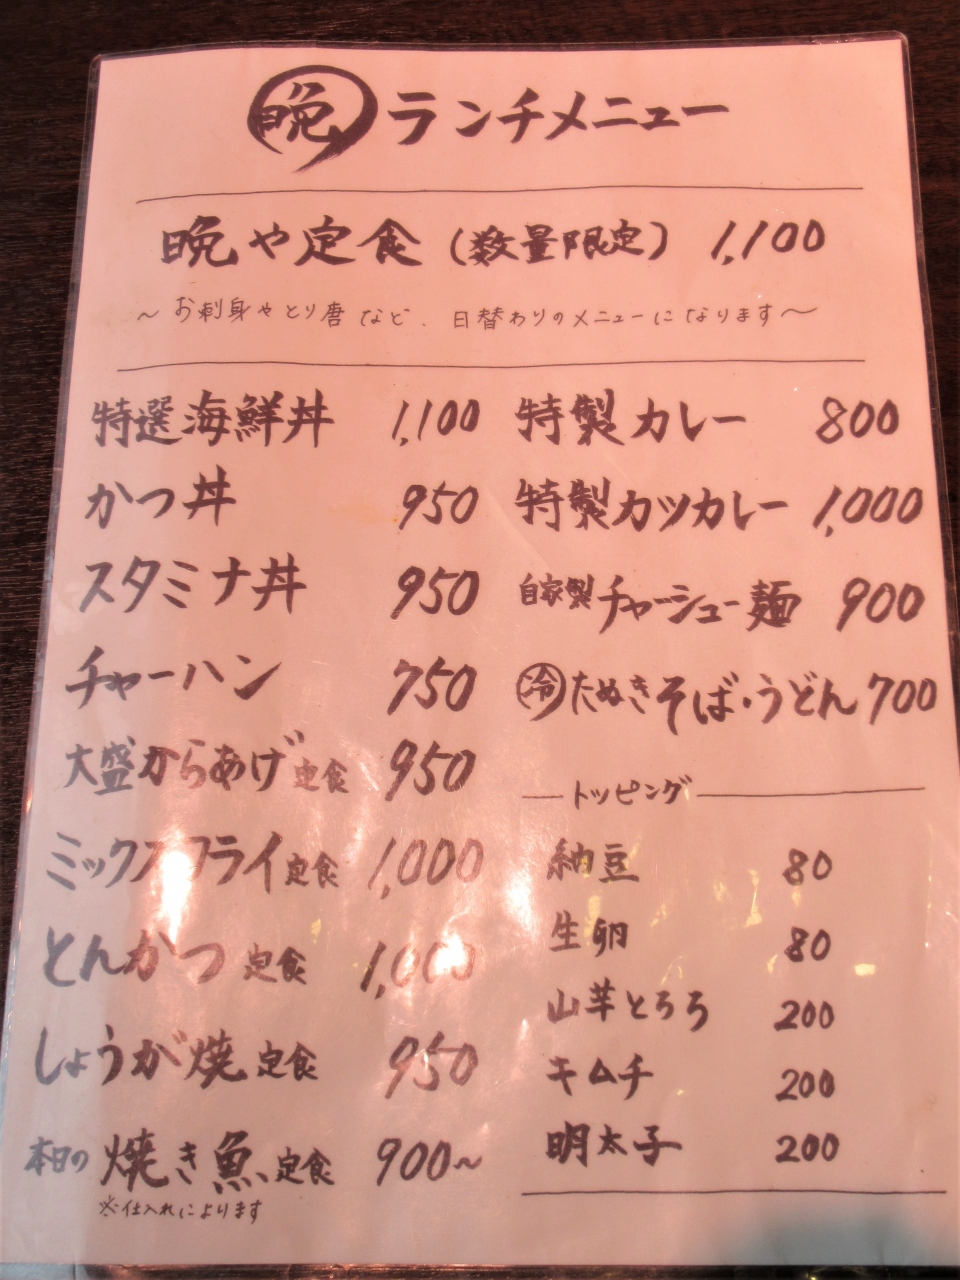 晩 ランチメニュー
晩や定食(数量限定) 1,100
～お刺身やとり唐など、日替わりのメニューになります～
特選海鮮丼 1,100
かつ丼 950
スタミナ丼 950
チャーハン 750
大盛からあげ定食 950
ミックスフライ定食 1,000
とんかつ定食 1,000
しょうが焼定食 950
本日の焼き魚定食 900～
※仕入れによります
特製カレー 800
特製カツカレー 1,000
自家製チャーシュー麺 900
冷たぬきそば・うどん 700
トッピング
納豆 80
生卵 80
山芋とろろ 200
キムチ 200
明太子 200